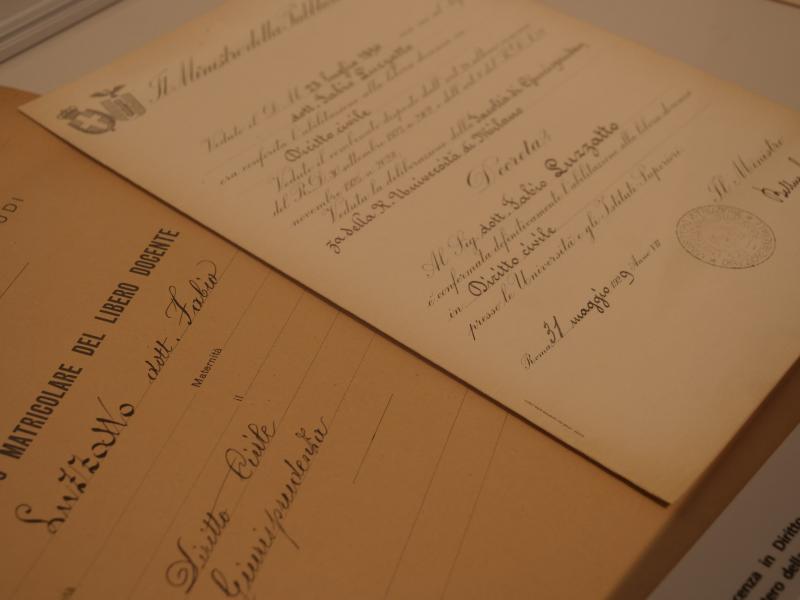 Il Ministro della Pubblica
Veduto il D. M. 23 luglio
dott. Fabio Luzzatto
era conferita l'abilitazione alla libera docenza in
Diritto civile
Veduto il combinato disposto dell'art.
del R. D. 30 settembre
novembre
Veduta la deliberazione della Facoltà di Giurisprudenza
za della R. Università di Milano
Decreta:
Al Sig. dott. Fabio Luzzatto
è confermata definitivamente l'abilitazione alla libera docenza
in Diritto civile
presso le Università e gli Istituti Superiori.
Roma 31 maggio 1929 Anno VII
Il Ministro
UDI
MATRICOLARE DEL LIBERO DOCENTE
Luzzatto dott. Fabio
Maternità
il
Diritto Civile
Giurisprudenza
cenza in Diritto
tero della